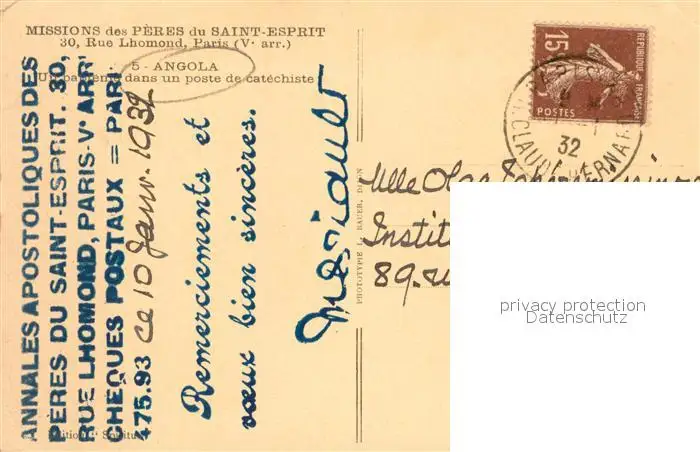 MISSIONS des PÈRES du SAINT-ESPRIT
30, Rue Lhomond, Paris (Vᵉ arr.)
5 - ANGOLA
Un baptême dans un poste de catéchiste
ANNALES APOSTOLIQUES DES
PÈRES DU SAINT-ESPRIT. 30,
RUE LHOMOND, PARIS-Vᵉ ARRᵗ
CHÈQUES POSTAUX = PARIS
475.93 ce 10 Janv. 1932
Remerciements et
vœux bien sincères.
PHOTOTYPIE L. BAUER, DIJON
15ᶜ
REPUBLIQUE FRANÇAISE
POSTES
32
R. CLAUDE BERNARD
Mlle Olga
Instit
89. ru
privacy protection
Datenschutz